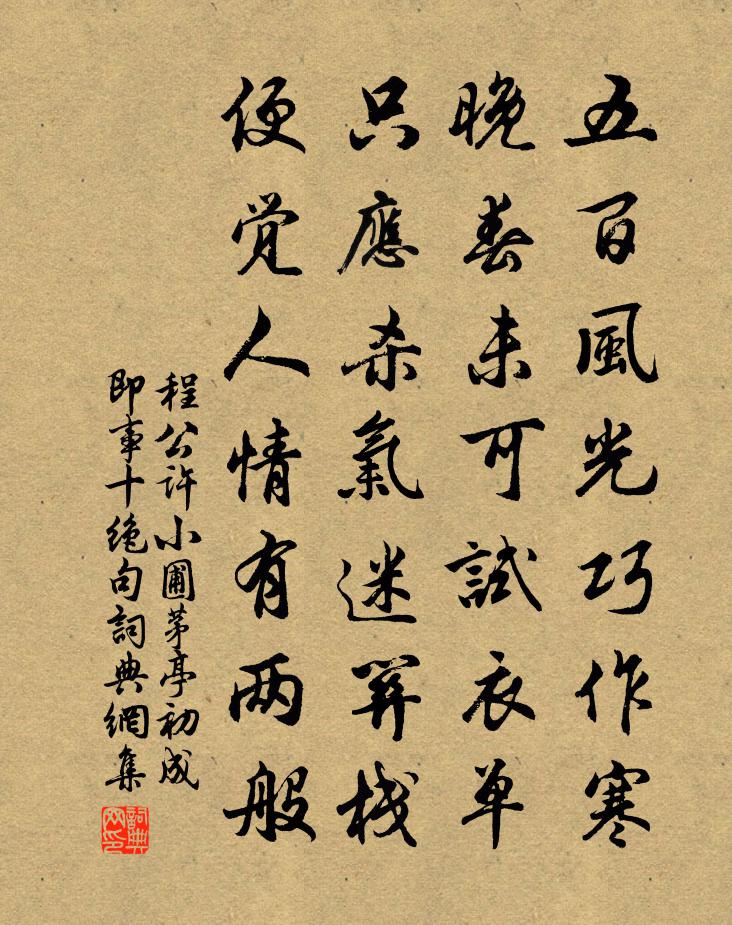 五百風光巧作寒
晚春未可試衣单
只應杀氣迷關栈
便觉人情有两般
程公許小圃茅亭初成
即事十絶句詞典網集
詞典
网印